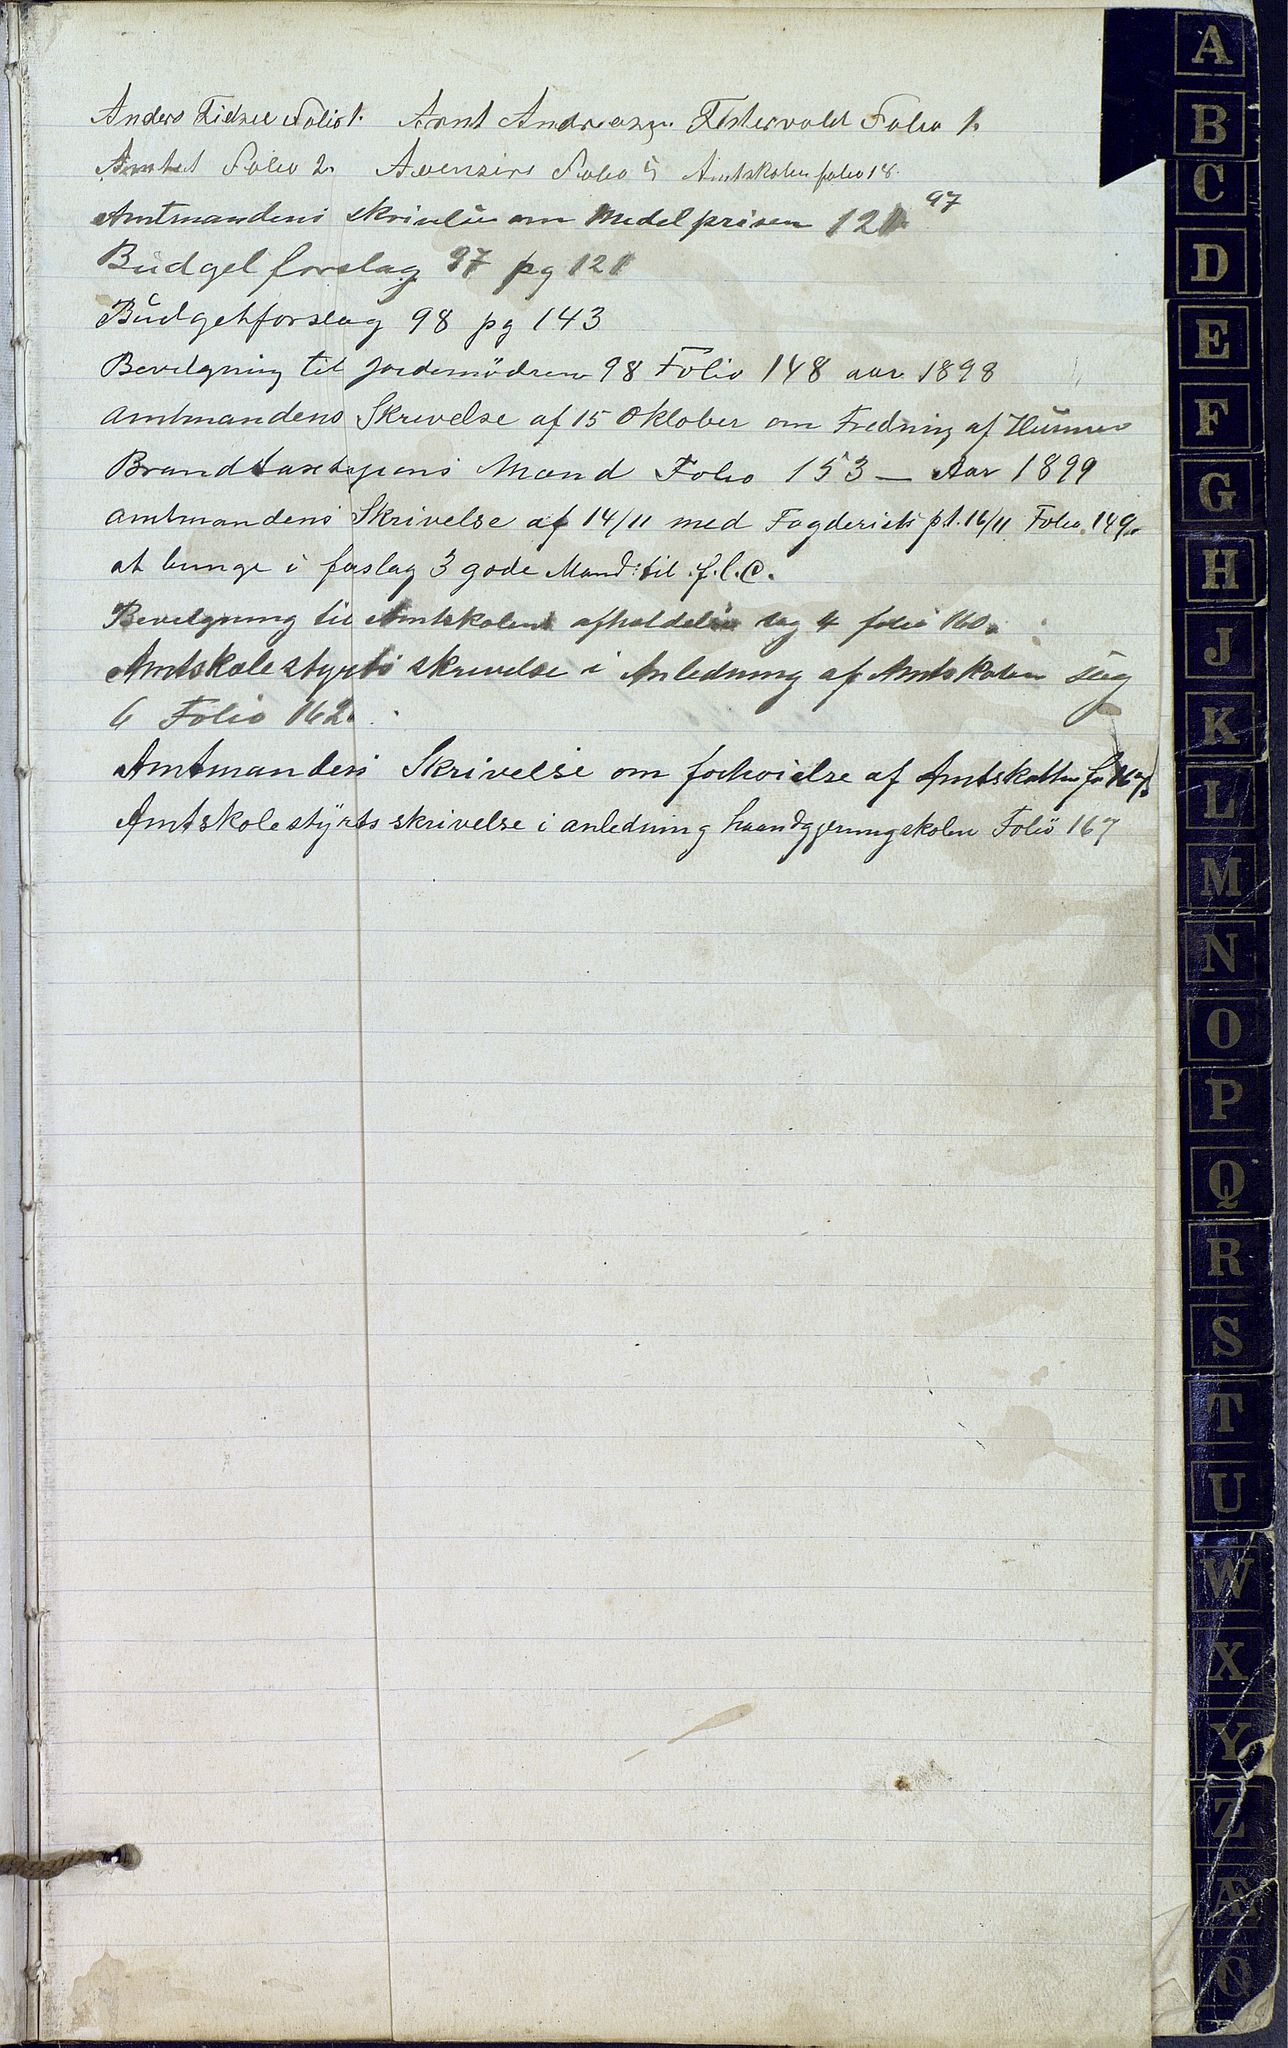 Anders Folio 1. Arnt Andreasen Festervold Folio 1.
Amtet Folio 2. Folio 5 Amtskolen folio 18.
Amtmandens om Medelprisen 121 97
Budgetforslag 97 pg 121
Budgetforslag 98 pg 143
Bevilgning til Jordemødren 98 Folio 148 aar 1898
amtmandens Skrivelse af 15 Oktober om Fredning af
Mænd Folio 153 — Aar 1899
amtmandens Skrivelse af 14/11 med pt. 16/11 Folio 149
at i forslag 3 gode Mænd til f.l.C.
Bevilgning til Amtskolens afholdelse sag 4 folio 160.
Amtskolestyrets skrivelse i Anledning af Amtskolen sag
6 Folio 162.
Amtmandens Skrivelse om forhøielse af Amtskatten
Amtskolestyrets skrivelse i anledning haandgjerningskolen Folio 167
A
B
C
D
E
F
G
H
J
K
L
M
N
O
P
Q
R
S
T
U
W
X
Y
Z
Æ
Ø